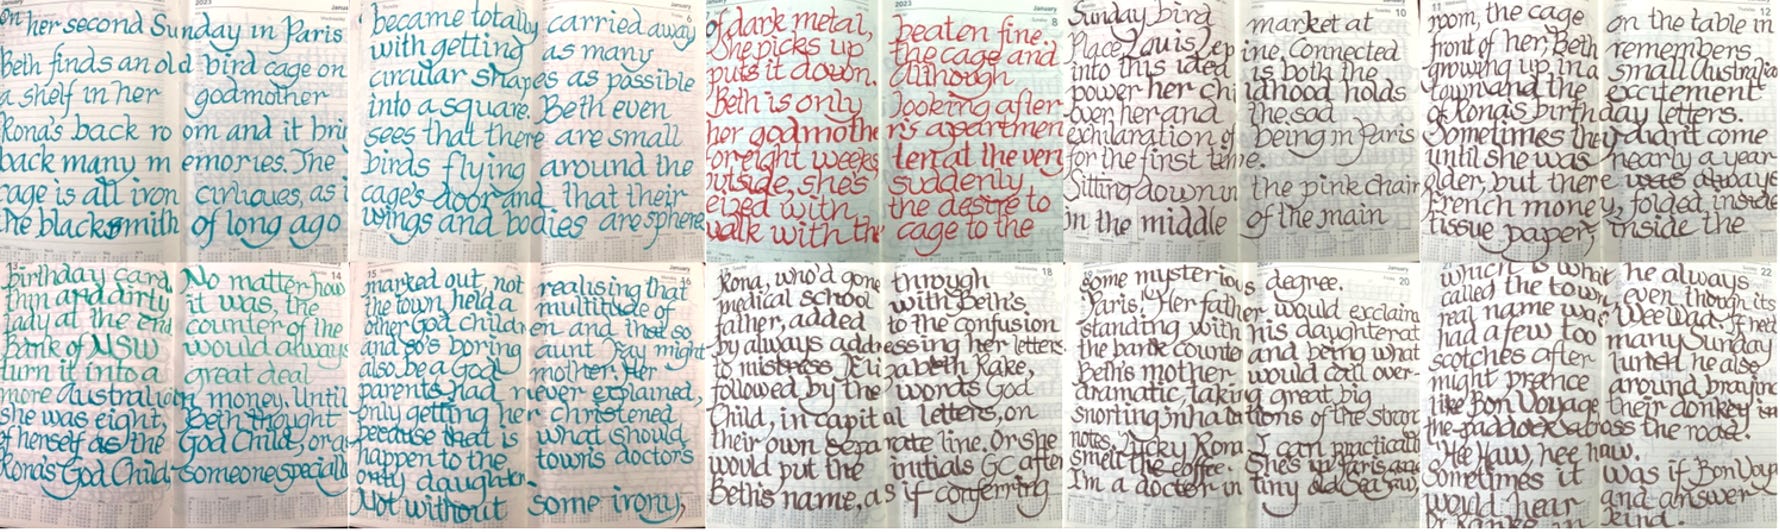 On her second Sunday in Paris
Beth finds an old bird cage on
a shelf in her godmother
Rona's back room and it bri
back many memories. The
cage is all iron cirliques, as i
the blacksmith of long ago
became totally carried away
with getting as many
circular shapes as possible
into a square. Beth even
sees that there are small
birds flying around the
cage's door and that their
wings and bodies are sphere
of dark metal, beaten fine.
She picks up the cage and
puts it down. Although
Beth is only looking after
her godmother's apartmen
for eight weeks,
outside, she's suddenly
eized with the desire to
walk with the cage to the
Sunday bird market at
Place Louis Lepine. Connected
into this idea is both the
power her childhood holds
over her and the sad
exhilaration of being in Paris
for the first time.
Sitting down in the pink chair
in the middle of the main
room, the cage on the table in
front of her, Beth remembers
growing up in a small Australia
town and the excitement
of Rona's birthday letters.
Sometimes they didn't come
until she was nearly a year
older, but there was always
French money, folded inside
tissue paper, inside the
birthday card.
No matter how
thin and dirty it was, the
lady at the end counter of the
Bank of NSW would always
turn it into a great deal
more Australian money. Until
she was eight, Beth thought
of herself as the God Child, or as
Rona's God Child - someone specially
marked out, not realising that
the town held a multitude of
other God children and that so
and so's boring aunt Fay might
also be a God mother. Her
parents had never explained,
only getting her christened
because that is what should
happen to the town's doctor's
only daughter.
Not without some irony,
Rona, who'd gone through
medical school with Beth's
father, added to the confusion
by always addressing her letters
to mistress Elizabeth Rake,
followed by the words God
Child, in capital letters, on
their own separate line. Or she
would put the initials GC after
Beth's name, as if conferring
some mysterious degree.
Paris! Her father would exclaim
standing with his daughter at
the bank counter and being what
Beth's mother would call over-
dramatic, taking great big
snorting inhalations of the strang
notes. Lucky Rona. I can practically
smell the coffee. She's in Paris and
I'm a doctor in tiny old See Saw,
which is what he always
called the town, even though its
real name was Wee Waa. If he'd
had a few too many Sunday
scotches after lunch he also
might prance around braying
like Bon Voyage, their donkey in
the paddock across the road.
Hee Haw, hee haw.
Sometimes it was if Bon Voya
would hear and answer
kind.